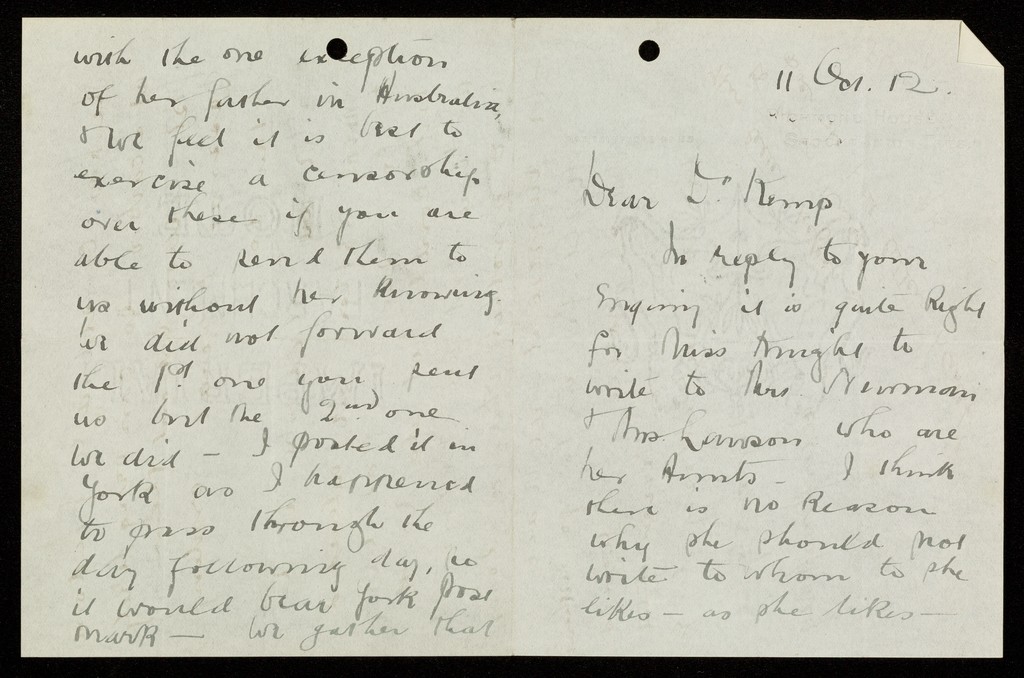 11 Oct. 12.
Dear Dr Kemp
In reply to your
Enquiry it is quite Right
for Miss Knight to
write to Mrs. Newman
& Mrs. Lawson who are
her Aunts – I think
there is no Reason
why she should not
write to whom to she
likes – as she likes –
with the one exception
of her father in Australia,
& we feel it is best to
exercise a censorship
over these if you are
able to send them to
us without her Knowing.
We did not forward
the 1st. one you sent
us but the 2nd one
we did – I posted it in
York as I happened
to pass through the
day following day, so
it would bear York post
mark – We gather that